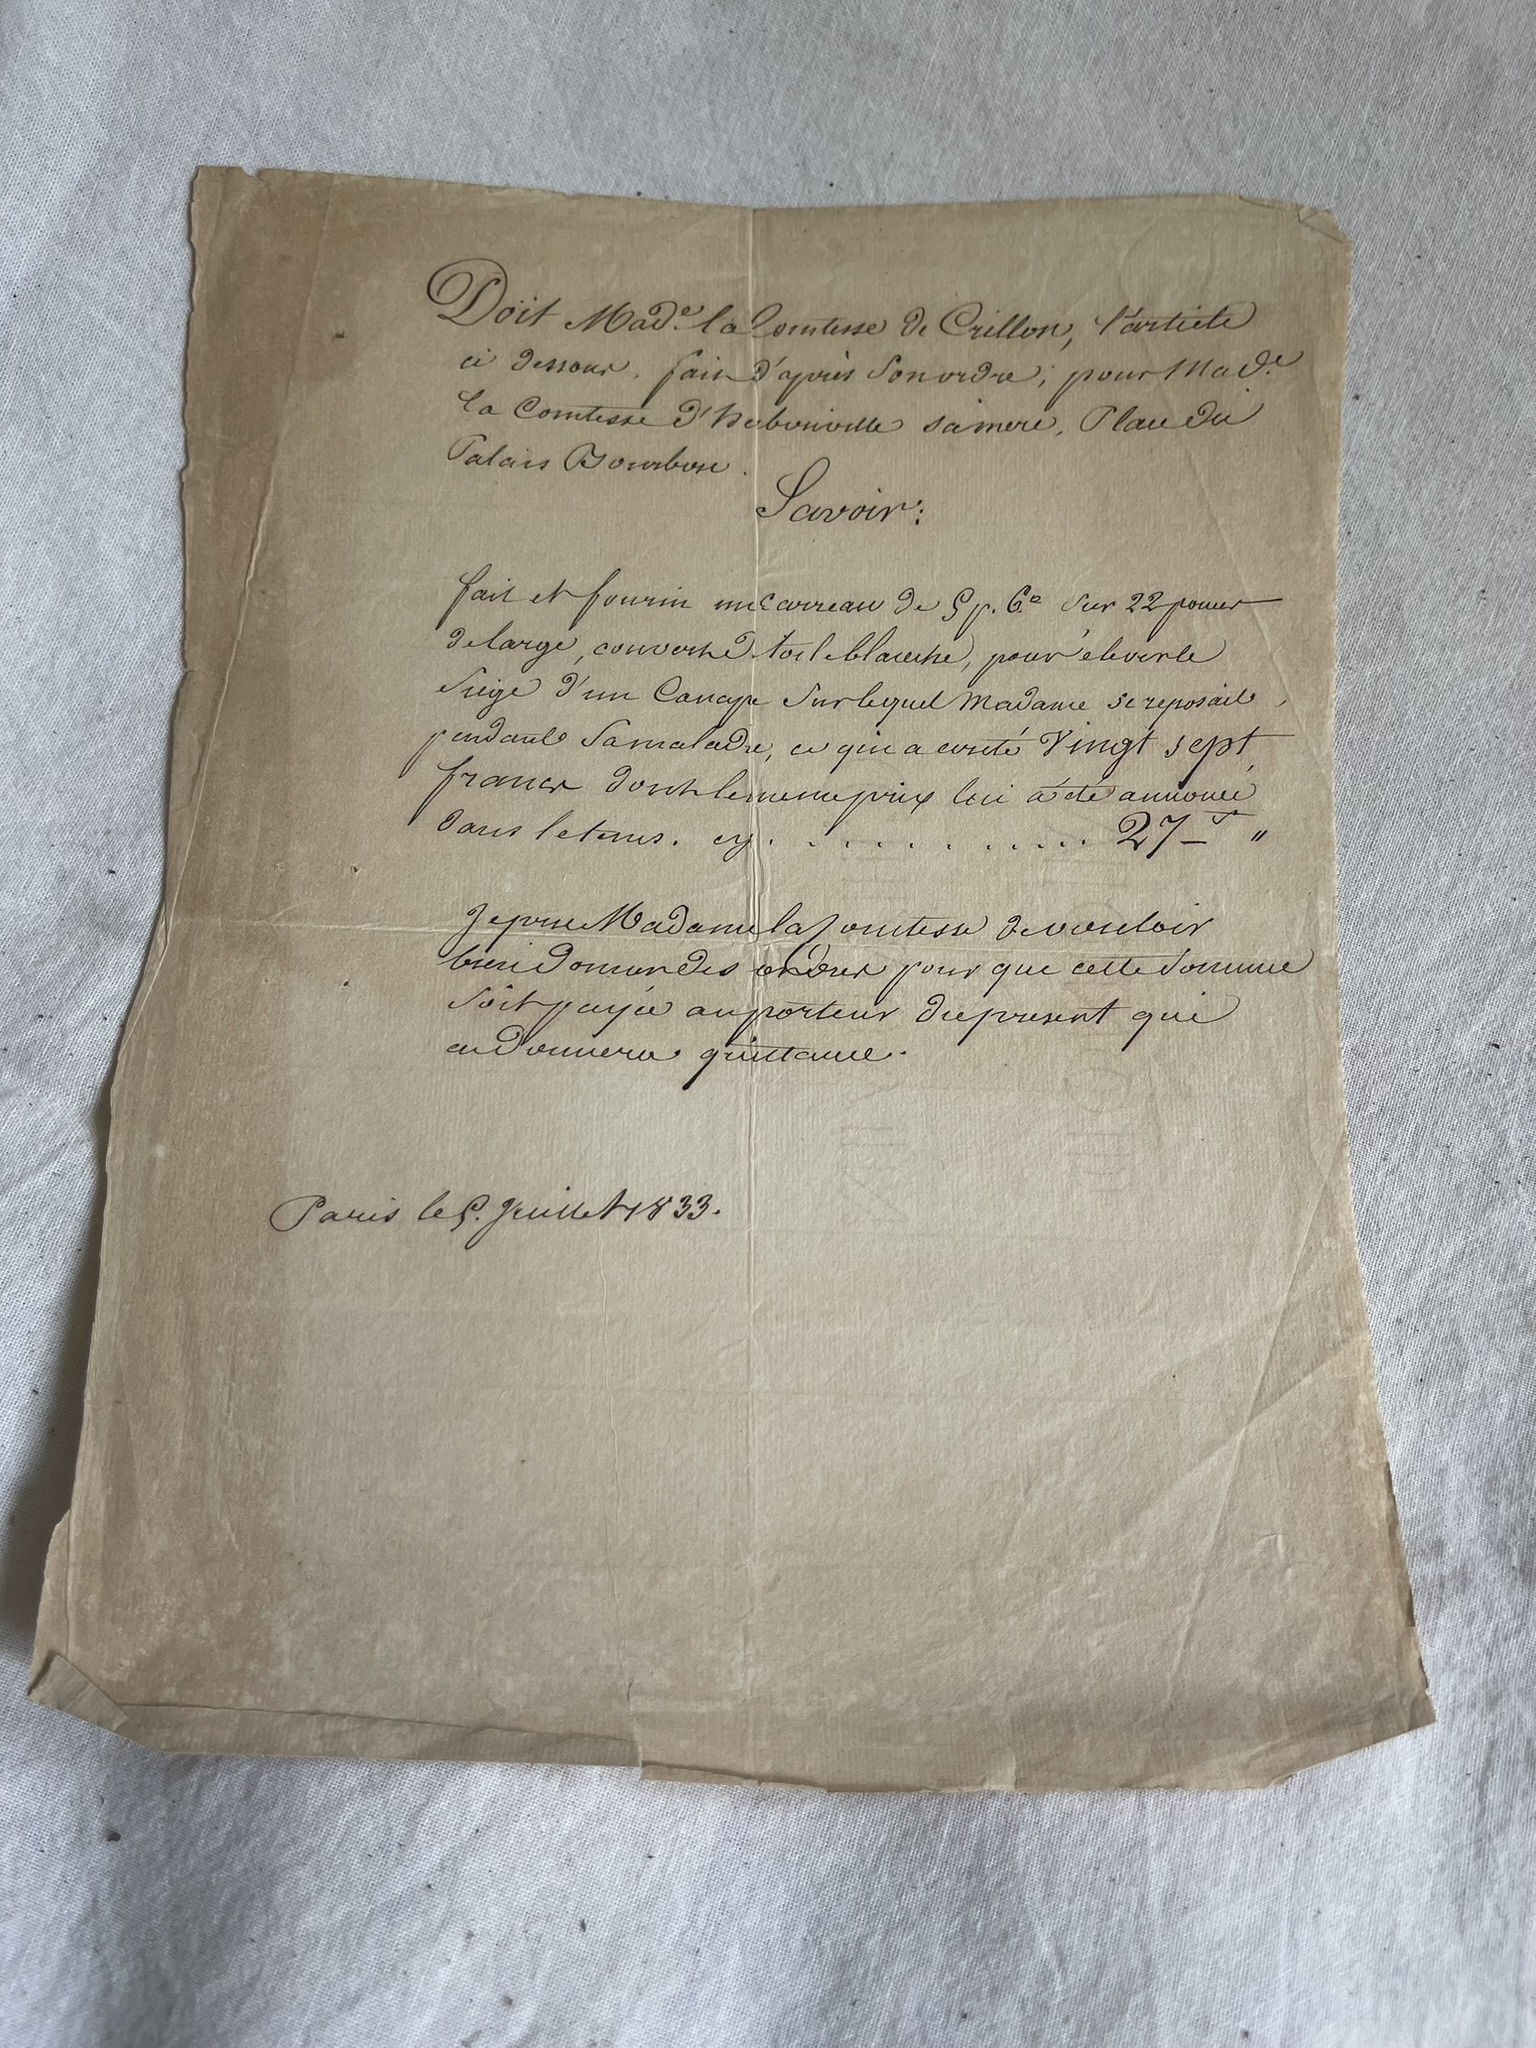 Doit Mad.e la Comtesse de Crillon, l'article
ci dessous, fait d'après son ordre; pour Mad.e
la Comtesse d'Herbouville sa mere, Place du
Palais Bourbon.
Savoir:
fait et fourni un Carreau de 5 p. 6.o sur 22 pouces
de large, couvert de toile blanche, pour élever le
siége d'un Canapé sur lequel Madame se reposait
pendant sa maladie, ce qui a couté Vingt sept
francs dont le meme prix lui a été annoncé
dans le tems. cy. . . . . . . . . . . . . 27 f "
Je prie Madame la Comtesse de vouloir
bien donner des ordres pour que cette somme
soit payée au porteur du present qui
en donnera quittance.
Paris le 5. Juillet 1833.